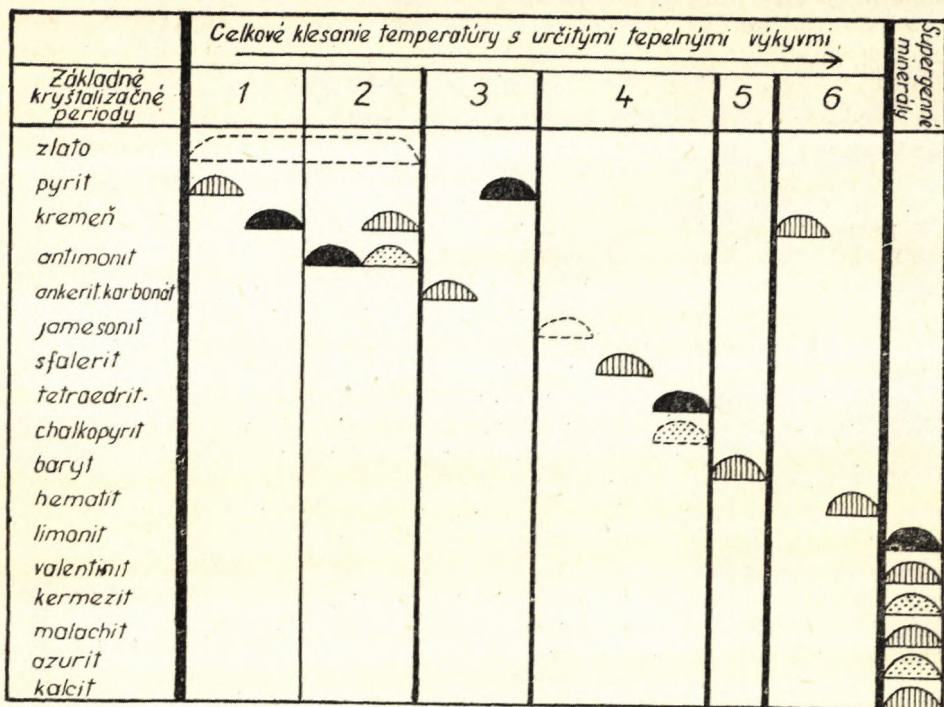 Celkové klesanie temperatúry s určitými tepelnými výkyvmi
Supergenné
minerály
Základné
kryštalizačné
periody
1 2 3 4 5 6
zlato
pyrit
kremeň
antimonit
ankerit. karbonát
jamesonit
sfalerit
tetraedrit.
chalkopyrit
baryt
hematit
limonit
valentinit
kermezit
malachit
azurit
kalcit